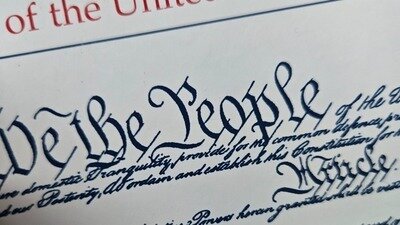 of the United
We the People of the U
domestic Tranquility, provide for the common defence, pr
our Posterity, do ordain and establish this Constitution for
Article
Powers herein granted shall be vest